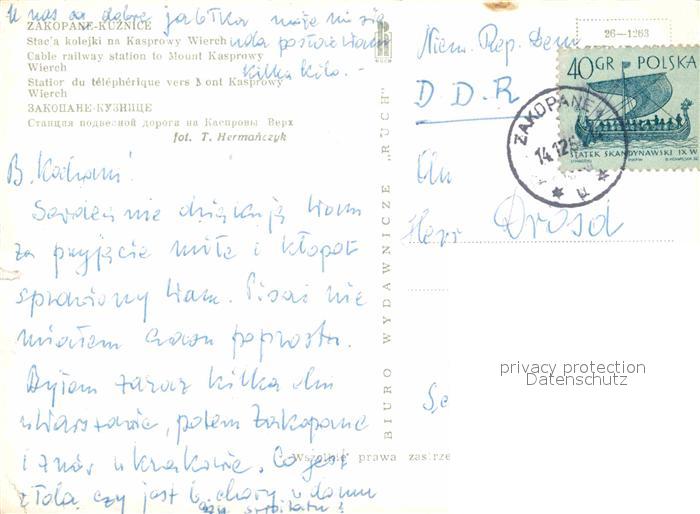 U nas są dobre jabłka może mi się
uda posłać Wam
kilka kilo. -
ZAKOPANE-KUŹNICE
Stacja kolejki na Kasprowy Wierch
Cable railway station to Mount Kasprowy
Wierch
Station du téléphérique vers Mont Kasprowy
Wierch
ЗАКОПАНЕ-КУЗНИЦЕ
Станция подвесной дороги на Каспровы Верх
fot. T. Hermańczyk
B. Kochani!
Serdecznie dziękuję Wam
za przyjęcie miłe i kłopot
sprawiony Wam. Pisać nie
miałem czasu poprostu.
Byłem zaraz kilka dni
w Warszawie, potem Zakopane
i znów w Krakowie. Co jest
z Jolą czy jest b. chora w domu
czy szpitalu?
BIURO WYDAWNICZE „RUCH"
Wszelkie prawa zastrze
26—1263
Niem. Rep. Dem
D.D.R
40GR POLSKA
STATEK SKANDYNAWSKI IX W
ZAKOPANE 1
14.12.6
An
Herr Drosd
privacy protection
Datenschutz